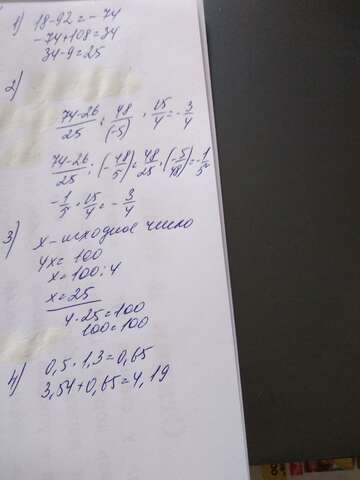 1) 18-92=-74
-74+108=34
34-9=25
2)
74-26/25 : 48/(-5) · 15/4 = -3/4
74-26/25 : (-48/5) = 48/25 · (-5/48) = -1/5
-1/5 · 15/4 = -3/4
3) х - исходное число
4х = 100
х = 100:4
х = 25
4·25=100
100=100
4) 0,5·1,3=0,65
3,54+0,65=4,19